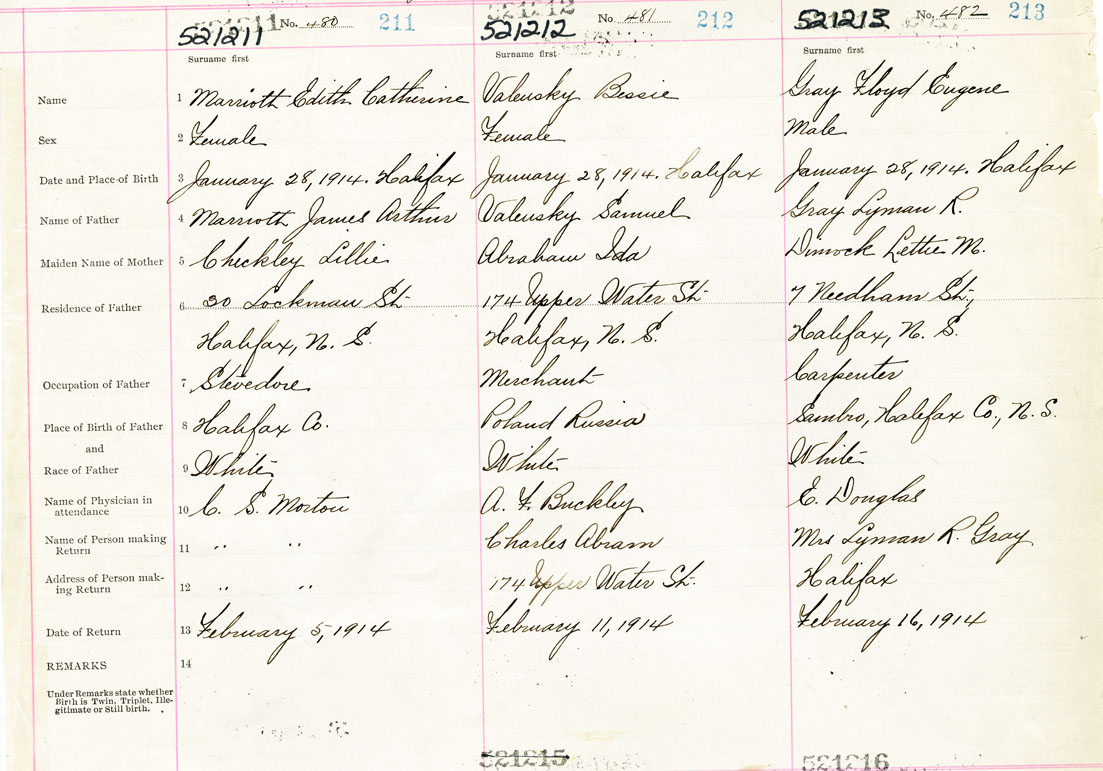 521211 No. 480 211 521212 No. 481 212 521213 No. 482 213
Surname first Surname first Surname first
Name 1 Marrioth Edith Catherine Valensky Bessie Gray Floyd Eugene
Sex 2 Female Female Male
Date and Place of Birth 3 January 28, 1914. Halifax January 28, 1914. Halifax January 28, 1914. Halifax
Name of Father 4 Marrioth James Arthur Valensky Samuel Gray Lyman R.
Maiden Name of Mother 5 Checkley Lillie Abraham Ida Dimock Lettie M.
Residence of Father 6 30 Lockman St. 174 Upper Water St. 7 Needham St.,
Halifax, N. S. Halifax, N. S. Halifax, N. S.
Occupation of Father 7 Stevedore Merchant Carpenter
Place of Birth of Father 8 Halifax Co. Poland Russia Sambro, Halifax Co., N. S.
and
Race of Father 9 White White White
Name of Physician in attendance 10 C. S. Morton A. F. Buckley E. Douglas
Name of Person making Return 11 " " Charles Abram Mrs Lyman R. Gray
Address of Person mak-
ing Return 12 " " 174 Upper Water St. Halifax
Date of Return 13 February 5, 1914 February 11, 1914 February 16, 1914
REMARKS 14
Under Remarks state whether
Birth is Twin, Triplet, Ille-
gitimate or Still birth.
521215 521216